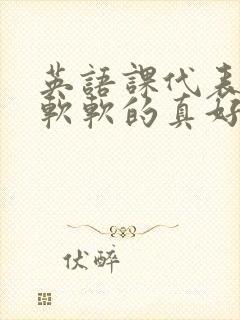 英語課代表
軟軟的真好
伏醉